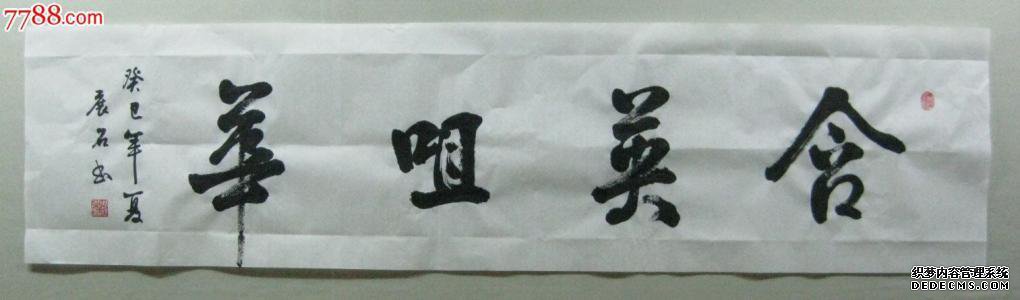 7788.com
含英咀華
癸巳年夏
展石书
织梦内容管理系统
DEDECMS.COM